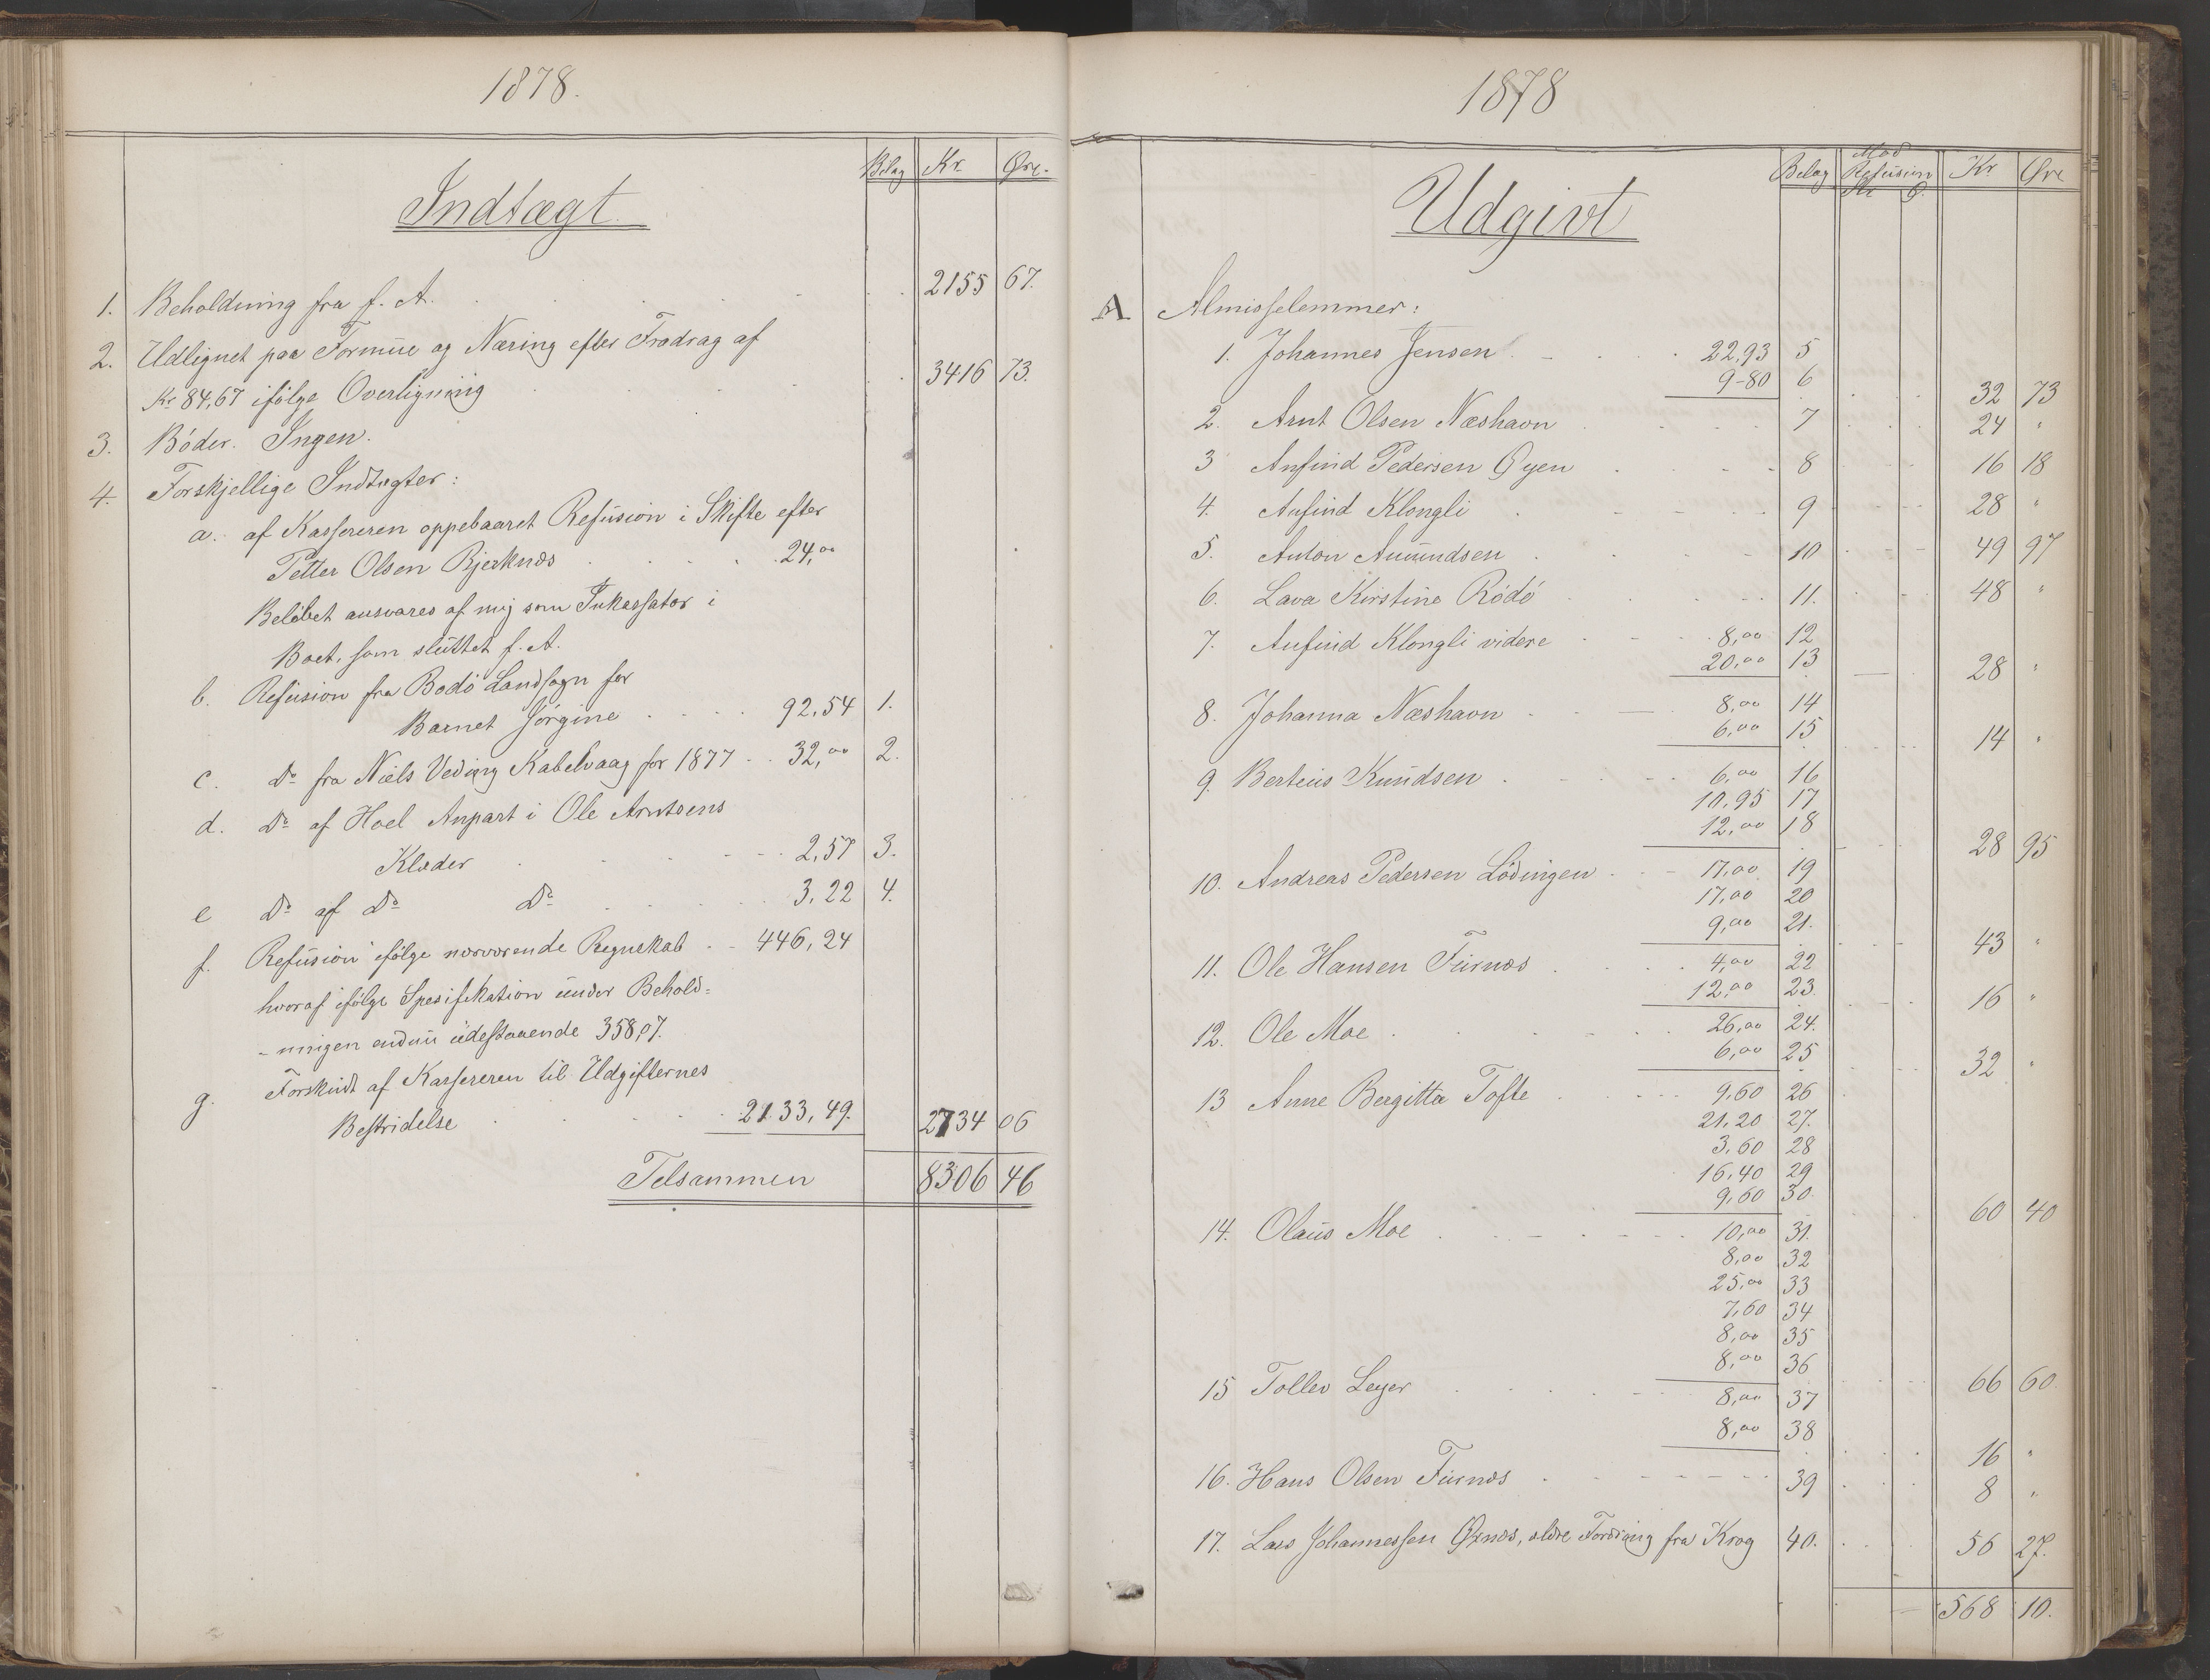 1878.
Indtægt
Bilag Kr. Øre.
1. Beholdning fra f. A. 2155 67.
2. Udlignet paa Formue og Næring efter Fradrag af
Kr 84,67 ifølge Overligning 3416 73.
3. Bøder. Ingen.
4. Forskjellige Indtægter:
a. af Kassereren oppebaaret Refusion i Skifte efter
Petter Olsen Bjerknæs 24,00
Beløbet ansvares af mig som Inkassator i
Boet, som sluttet f. A.
b. Refusion fra Bodø Landsogn for
Barnet Jørgine 92,54 1.
c. Do fra Niels Veding Kabelvaag for 1877 32,00 2.
d. Do af Hoel Anpart i Ole Arntsens
Klæder 2,57 3.
e Do af Do Do 3,22 4.
f. Refusion ifølge nærværende Regnskab 446,24
hvoraf ifølge Spesifikation under Behold=
-ningen endnu udestaaende 358,07.
g. Forskudt af Kassereren til Udgifternes
Bestridelse 2133,49. 2734 06
Tilsammen 8306 46
1878
Udgivt
Belag Mod Refusion Kr Ø. Kr Øre
A Almisselemmer:
1. Johannes Jensen 22,93 5
9-80 6 32 73
2. Arnt Olsen Næshavn 7 24 "
3 Anfind Pedersen Øyen 8 16 18
4. Anfind Klongli 9 28 "
5. Anton Amundsen 10 49 97
6. Lava Kirstine Rødø 11. 48 "
7. Anfind Klongli videre 8,00 12
20,00 13 28 "
8. Johanna Næshavn 8,00 14
6,00 15 14 "
9. Berteus Knudsen 6,00 16
10,95 17
12,00 18 28 95
10. Andreas Pedersen Lödingen 17,00 19
17,00 20
9,00 21. 43 "
11. Ole Hansen Furnæs 4,00 22
12,00 23 16 "
12. Ole Moe 26,00 24.
6,00 25 32 "
13 Anne Bergitta Tofte 9,60 26
21,20 27.
3,60 28
16,40 29
9,60 30. 60 40
14. Olaus Moe 10,00 31.
8,00 32
25,00 33
7,60 34
8,00 35
8,00 36 66 60
15 Tollev Leyer 8,00 37
8,00 38 16 "
16. Hans Olsen Furnæs 39 8 "
17. Lars Johannessen Øxnæs, ældre Fordring fra Krog 40. 56 27.
568 10.